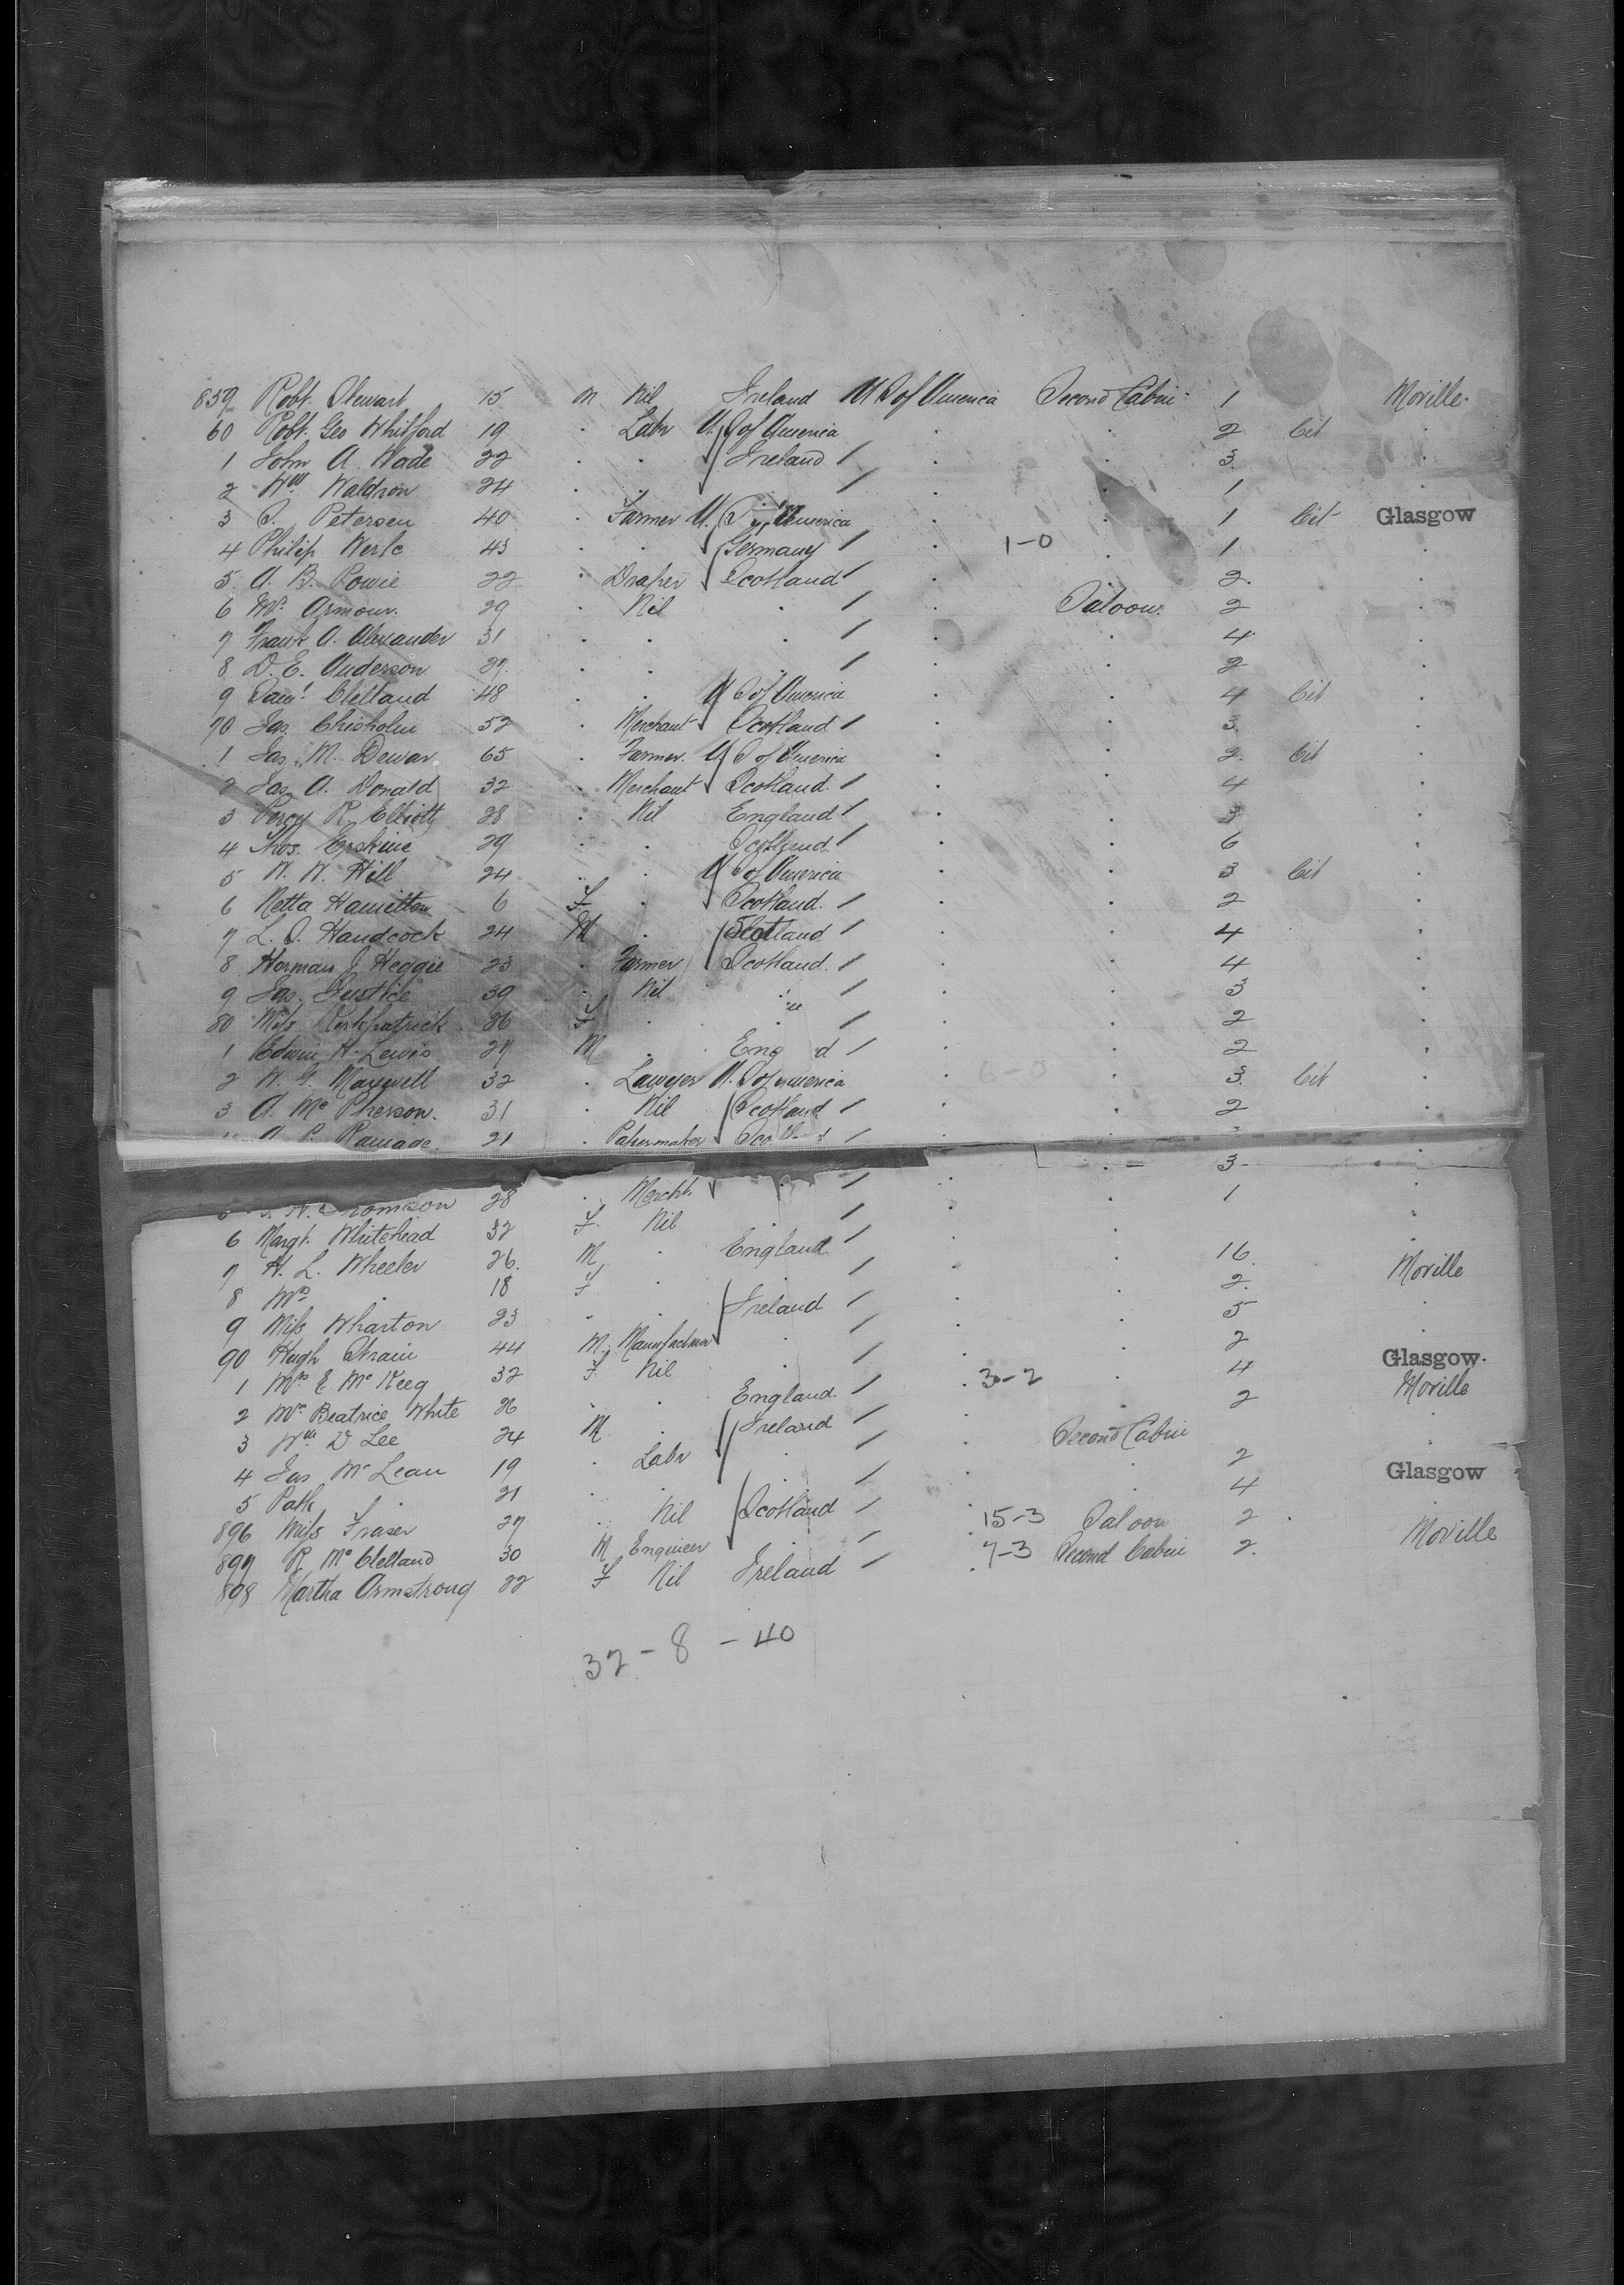 859 Robt. Stewart 15 M Nil Ireland U S of America Second Cabin 1 Moville.
60 Robt. Geo Whitford 19 . Labr U. S of America . . 2 Cit .
1 John A. Wade 22 . . Ireland / . . 3. .
2 Wm Waldron 24 . . . / . . 1 .
3 S. Petersen 40 . Farmer U. S of America . . 1 Cit Glasgow
4 Philip Werle 43 . . Germany / . 1-0 . 1 .
5 A. B. Powie 22 . Draper Scotland / . . 2. .
6 Mr. Armour. 29 . Nil . / . Saloon. 2 .
7 Frank A. Alexander 31 . . . / . . 4 .
8 D. E. Anderson 27 . . . / . . 2 .
9 Saml. Clelland 48 . . U S of America . . 4 Cit .
70 Jas. Chisholm 52 . Merchant Scotland / . . 3. .
1 Jas. M. Dewar 65 . Farmer. U S of America . . 2. Cit .
2 Jas A. Donald 32 . Merchant Scotland. / . . 4 .
3 Percy R. Elliott 28 . Nil England / . . 3 .
4 Thos. Erskine 29 . . Scotland / . . 6 .
5 W. W. Hill 24 . . U S of America . . 3 Cit .
6 Netta Hamilton 6 F . Scotland. / . . 2 .
7 L. S. Handcock 24 M . Scotland / . . 4 .
8 Herman J. Heggie 23 . Farmer Scotland. / . . 4 .
9 Jas. Justice 39 . Nil / . . 3 .
80 Miss Kirkpatrick 26 F . . / . . 2 .
1 Edwin H. Lewis 27 M . Eng d / . . 2 .
2 W. G. Maxwell 32 . Lawyer U. S of America . 6-0 . 3. Cit .
3 A. McPherson. 31 . Nil Scotland / . . 2 .
A. P. Ramage 21 . Papermaker Scotl d / . . 3 .
Thomson 28 . Mercht . / . . 1 .
6 Margt. Whitehead 32 F. Nil . / . .
7 H. L. Wheeler 26. M . England / . . 16. Moville
8 Mrs . 18 F . . / . . 2. .
9 Miss Wharton 23 . . Ireland / . . 5 .
90 Hugh Strain 44 M. Manufacturer . / . . 2 Glasgow.
1 Mrs E McKeeg 32 F. Nil . / . 3-2 . 4 Moville
2 Mrs. Beatrice White 26 . . England. / . . 2 .
3 Wm D Lee 24 M . Ireland / . Second Cabin
4 Jas McLean 19 . Labr . / . . 2 Glasgow
5 Patk . 21 . . . / . . 4 .
896 Miss Fraser 27 . Nil Scotland / . 15-3 Saloon 2 .
897 R. McClelland 30 M Engineer . / . 7-3 Second Cabin 2. Moville
898 Martha Armstrong 22 F Nil Ireland /
32 - 8 - 40